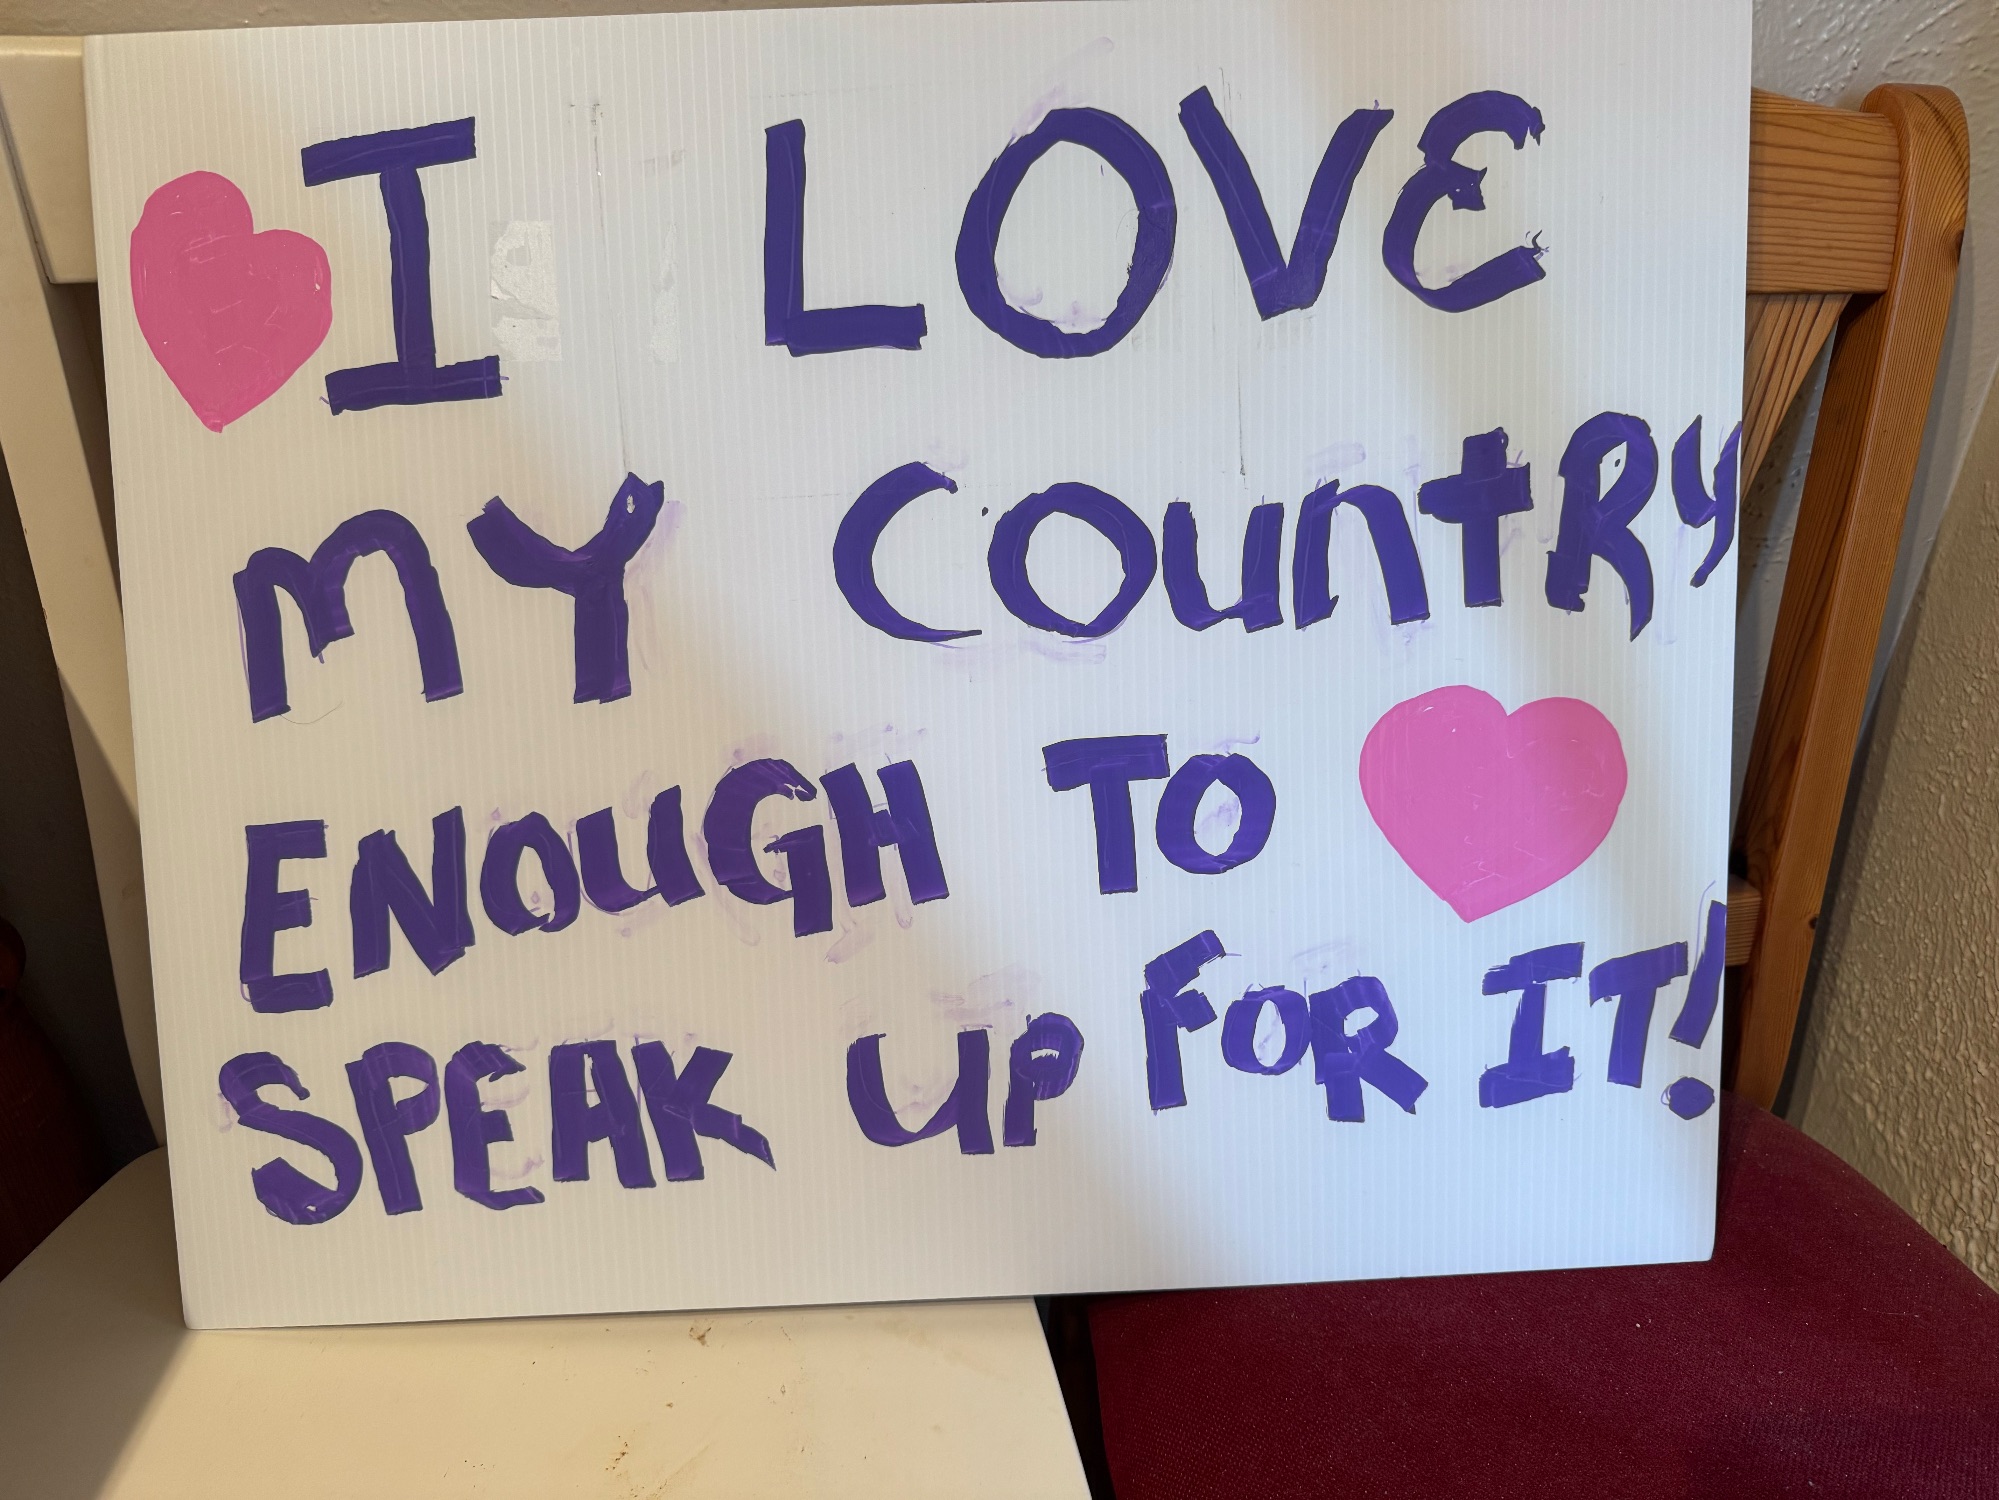 I LOVE
MY COUNTRY
ENOUGH TO
SPEAK UP FOR IT!